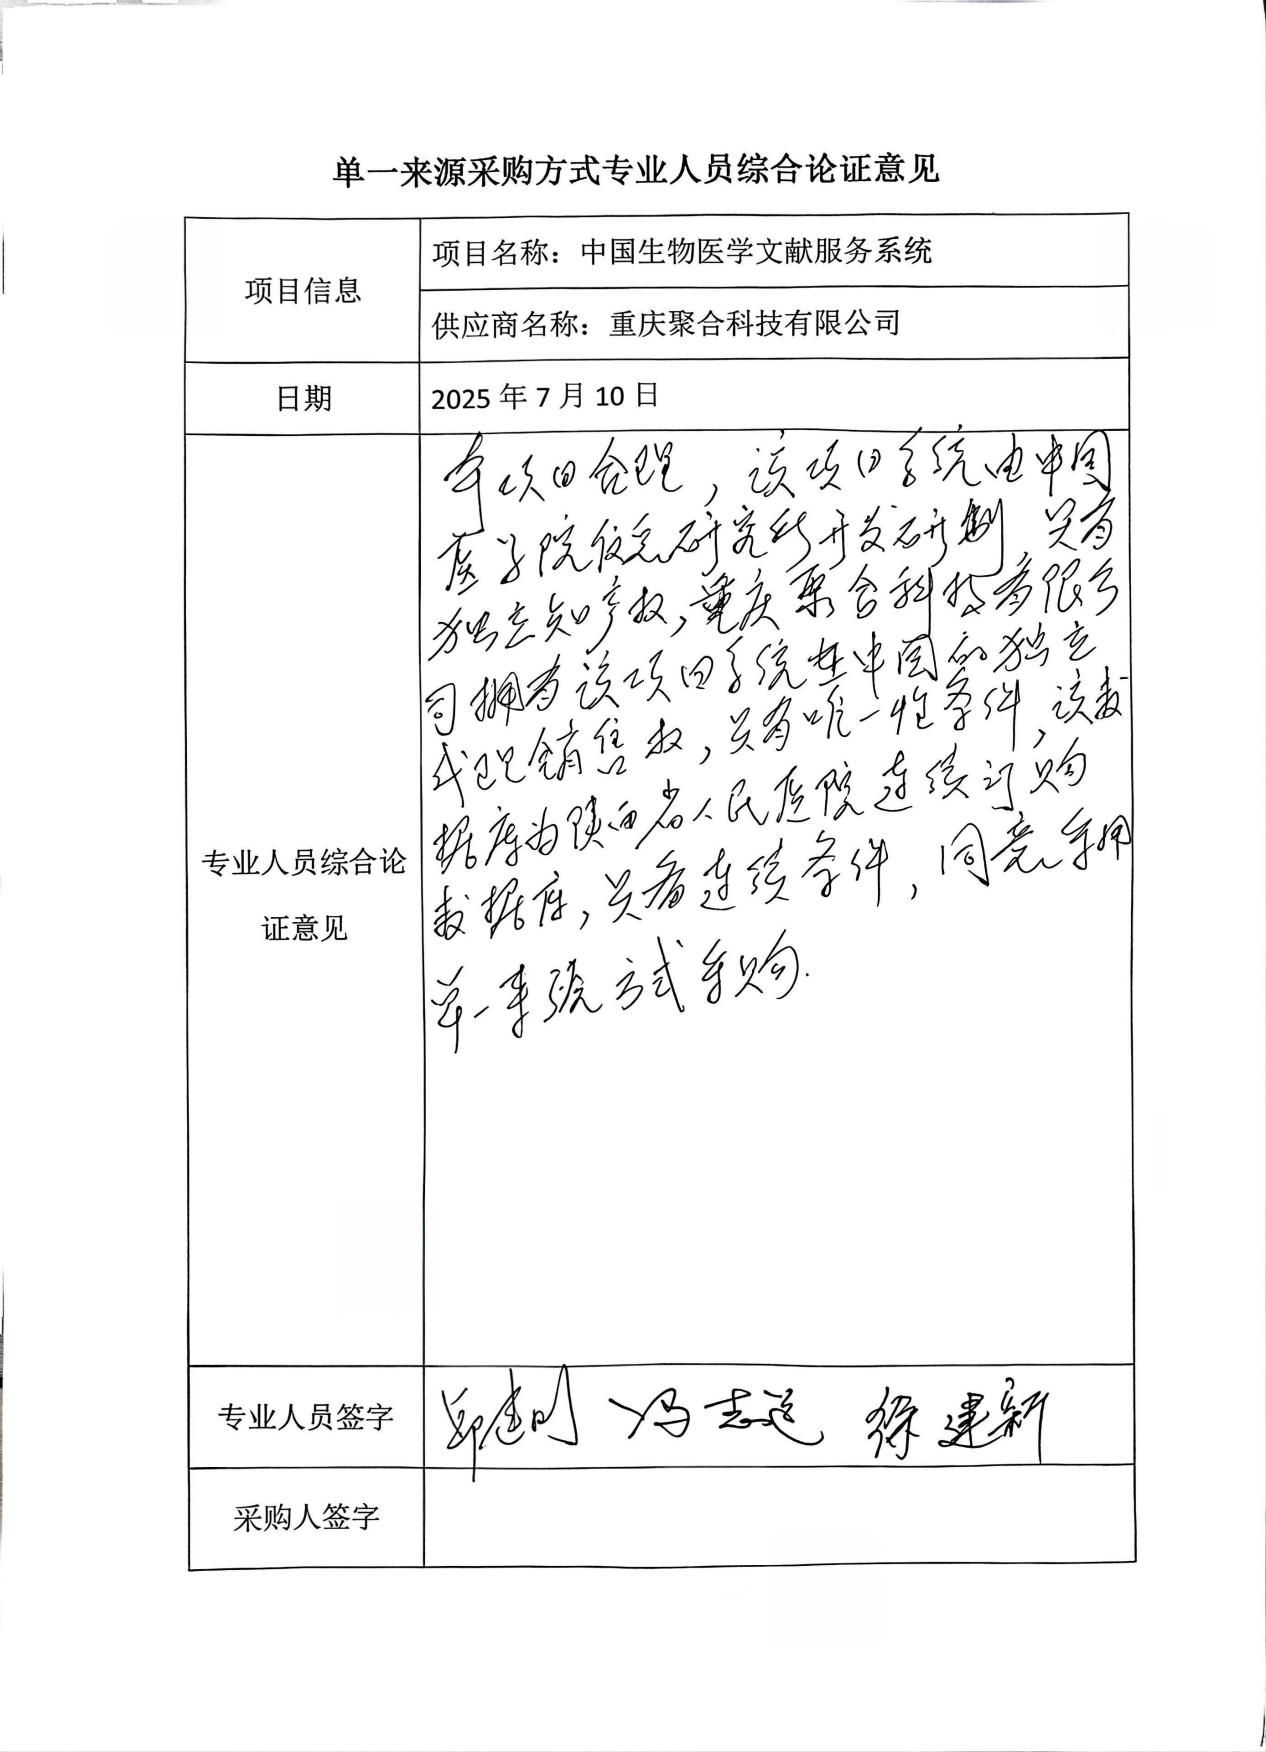 单一来源采购方式专业人员综合论证意见
项目信息
项目名称：中国生物医学文献服务系统
供应商名称：重庆聚合科技有限公司
日期
2025 年 7 月 10 日
专业人员综合论
证意见
本项目合理，该项目系统由中国
医学院信息研究所开发研制，具有
独立知产权，重庆聚合科技有限公
司拥有该项目系统在中国的独立
代理销售权，具有唯一性条件，该数
据库为陕西省人民医院连续订购
数据库，具有连续条件，同意采用
单一来源方式采购.
专业人员签字
冯志 徐建新
采购人签字